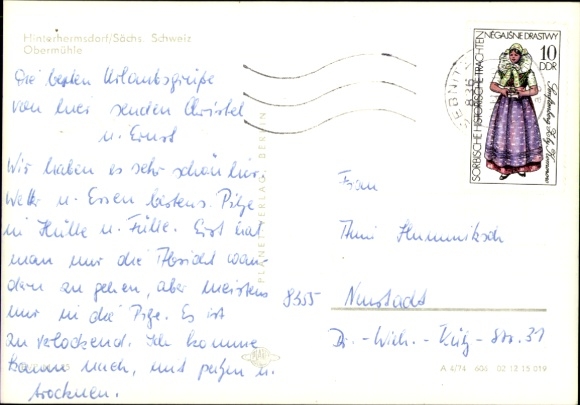 Hinterhermsdorf/Sächs. Schweiz
Obermühle
Die besten Urlaubsgrüße
von hier senden Christel
u. Ernst
Wir haben es sehr schön hier,
Wetter u. Essen bestens. Pilze
in Hülle u. Fülle. Erst hat
man nur die Absicht wan-
dern zu gehen, aber meistens
nur in die Pilze. Es ist
zu verlockend. Ich komme
kaum nach, mit putzen u.
trocknen.
PLANET-VERLAG BERLIN
SEBNITZ
8.3.16
NĚGAJŠNE DRASTWY
10
DDR
SORBISCHE HISTORISCHE TRACHTEN
Frau
8355 Neustadt
Dr.-Wilh.-Külz-Str. 31
A 4/74 604 02 12 15 019